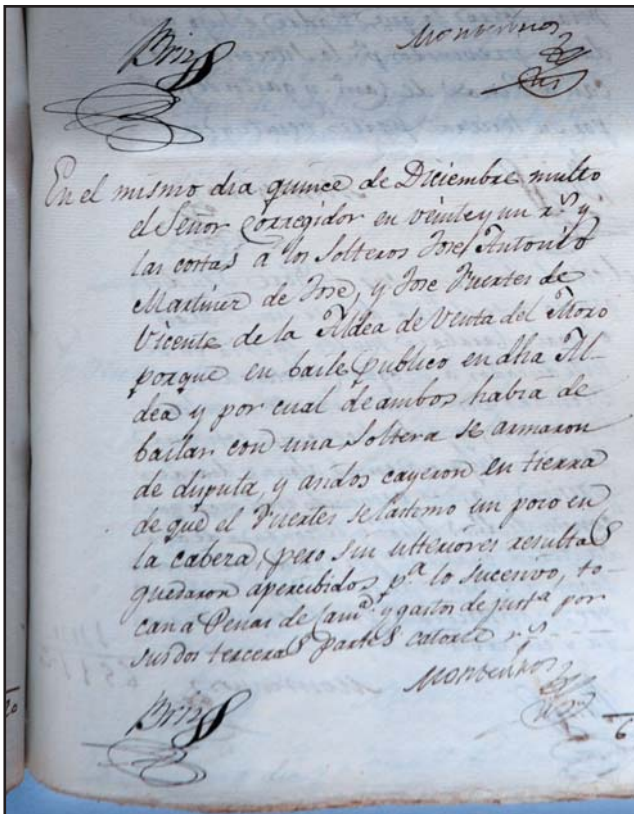 Briz
Montesinos
En el mismo dia quince de Diciembre multo
el Señor Corregidor en veinte y un r.s y
las costas a los Solteros José Antonio
Martinez de José, y José Fuertes de
Vicente de la Aldea de Venta del Moro
porque en baile publico en dha Al-
dea y por cual de ambos habia de
bailar con una Soltera se armaron
de disputa, y asidos cayeron en tierra
de que el Fuertes se lastimo un poco en
la cabeza, pero sin ulteriores resultas
quedaron apercibidos p.a lo sucesivo, to-
can a Penas de Cam.a y gastos de just.a por
sus dos terceras partes catorce r.s
Montesinos
Briz
6